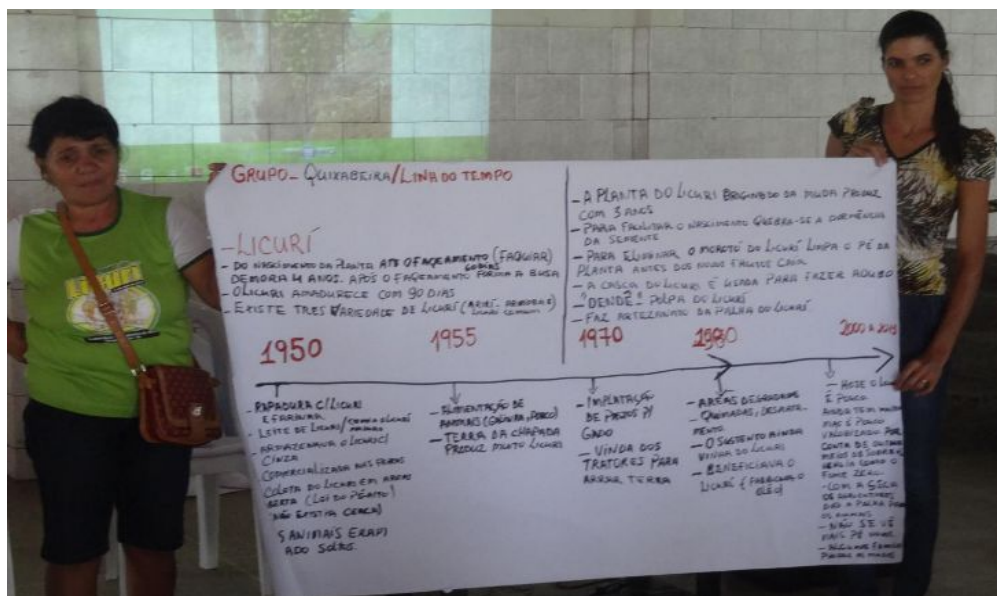 GRUPO - QUIXABEIRA/LINHA DO TEMPO
- LICURÍ
- DO NASCIMENTO DA PLANTA ATÉ O FAÇEAMENTO (FAQUIAR)
DEMORA 4 ANOS. APÓS O FAÇEAMENTO 60 DIAS FORMA A BUSA
- O LICURI AMADURECE COM 90 DIAS
- EXISTE TRES VARIEDADE DE LICURÍ
LICURI COMUM
- A PLANTA DO LICURI ORIGINADO DA MUDA PRODUZ
COM 3 ANOS
- PARA FACILITAR O NASCIMENTO QUEBRA-SE A DORMÊNCIA
DA SEMENTE
- PARA ELIMINAR O MOROTÓ DO LICURÍ LIMPA O PÉ DA
PLANTA ANTES DOS NOVOS FRUTOS CAIR
- A CASCA DO LICURI É USADA PARA FAZER ADUBO
- "DENDÊ" POLPA DO LICURÍ
- FAZ ARTEZANATO DA PALHA DO LICURÍ
1950
1955
1970
1980
2000 A
- RAPADURA C/LICURI
E FARINHA
- LEITE DE LICURI/
- ARMAZENAVA O LICURI C/
CINZA
COMERCIALIZADA NAS FEIRAS
COLETA DO LICURI EM AREAS
(LEI DO
NÃO EXISTIA CERCA)
S ANIMAIS ERAM
ADO SOLTO.
- ALIMENTAÇÃO DE
ANIMAIS (GALINHA, PORCO)
- TERRA DA CHAPADA
PRODUZ MUITO LICURI
- IMPLATAÇÃO
DE PASTOS P/
GADO
- VINDA DOS
TRATORES PARA
ARRAR TERRA
- AREAS DEGRADADAS
QUEIMADAS, DESMATA-
MENTO.
- O SUSTENTO AINDA
VINHA DO LICURI
- BENEFICIAVA O
LICURI (FABRICAVA O
OLEO)
- HOJE O
É POUCO
AINDA TEM
MAS É POUCO
VALORIZADO POR
CONTA DE OUTROS
MEIOS DE
COMO O
FOME ZERO.
- COM A SECA
OS AGRICULTORES
DÃO A PALHA PARA
OS ANIMAIS
- NÃO SE VÊ
MAIS PÉ
- ALGUMAS